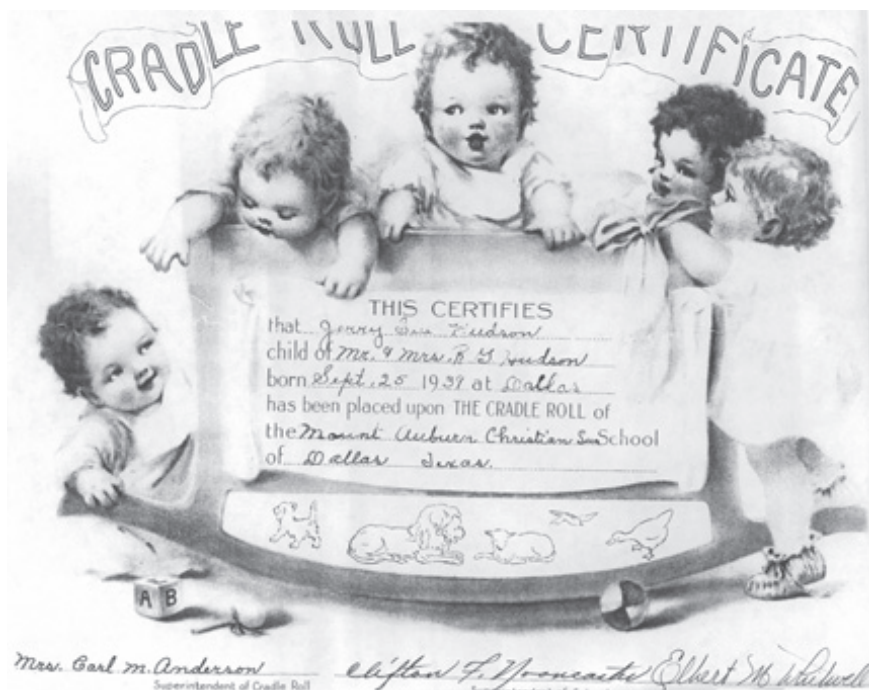 CRADLE ROLL CERTIFICATE
THIS CERTIFIES
that Jerry Sue Hudson
child of Mr. & Mrs. R G Hudson
born Sept. 25 1939 at Dallas
has been placed upon THE CRADLE ROLL of
the Mount Auburn Christian Sun School
of Dallas Texas.
A B
Mrs. Carl M. Anderson Clifton F. Elbert M Whitwell
Superintendent of Cradle Roll